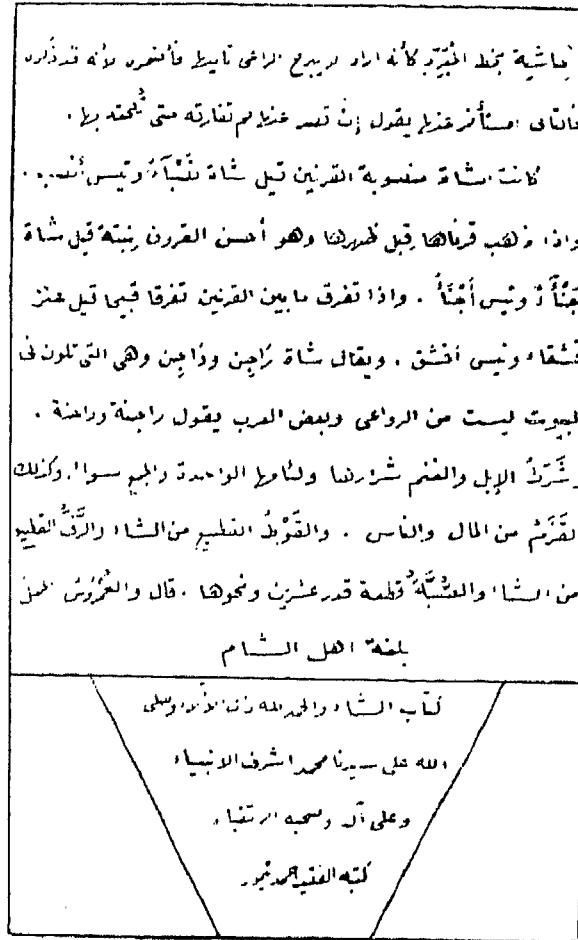 حاشية بخط المبرّد كأنه اراد لا يبرح الراعى
فالتالى مستأخر عنها يقول إن تصد عنها لم تفارقه حتى
كانت الشاة منصوبة القرنين قيل شاة نَصْبَآءُ وتيس أنصب .
واذا ذهب قرناها قِبل ظهرها وهو أحسن القرون نِبتة قيل شاة
جَنْأَآءُ وتيس أَجْنَأُ . واذا تفرق ما بين القرنين تفرقا قبيحا قيل عنز
فشقاء وتيس أفشق . ويقال شاة رَاجِن ودَاجِن وهى التى تكون فى
البيوت ليست من الرواعى وبعض العرب يقول راجنة وداجنة .
وشَرَطُ الإبل والغنم شرارها ولئامها الواحدة والجميع سواء. وكذلك
القَزَمُ من المال والناس . والقَوْطُ القطيع من الشاء والزَّفُّ القطيع
من الشاء والصُّبَّةُ قطعة قدر عشرين ونحوها . قال والعُمْرُوسُ الحمل
بلغة اهل الشام
كتاب الشاء والحمد لله وصلى
الله على سيدنا محمد اشرف الانبياء
وعلى آله وصحبه الاتقياء
كتبه الفقير احمد تيمور